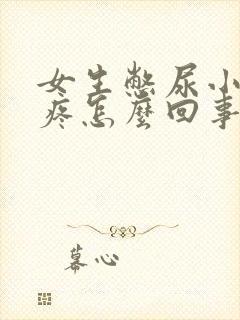 女生憋尿小
疼怎麼回事
幕心